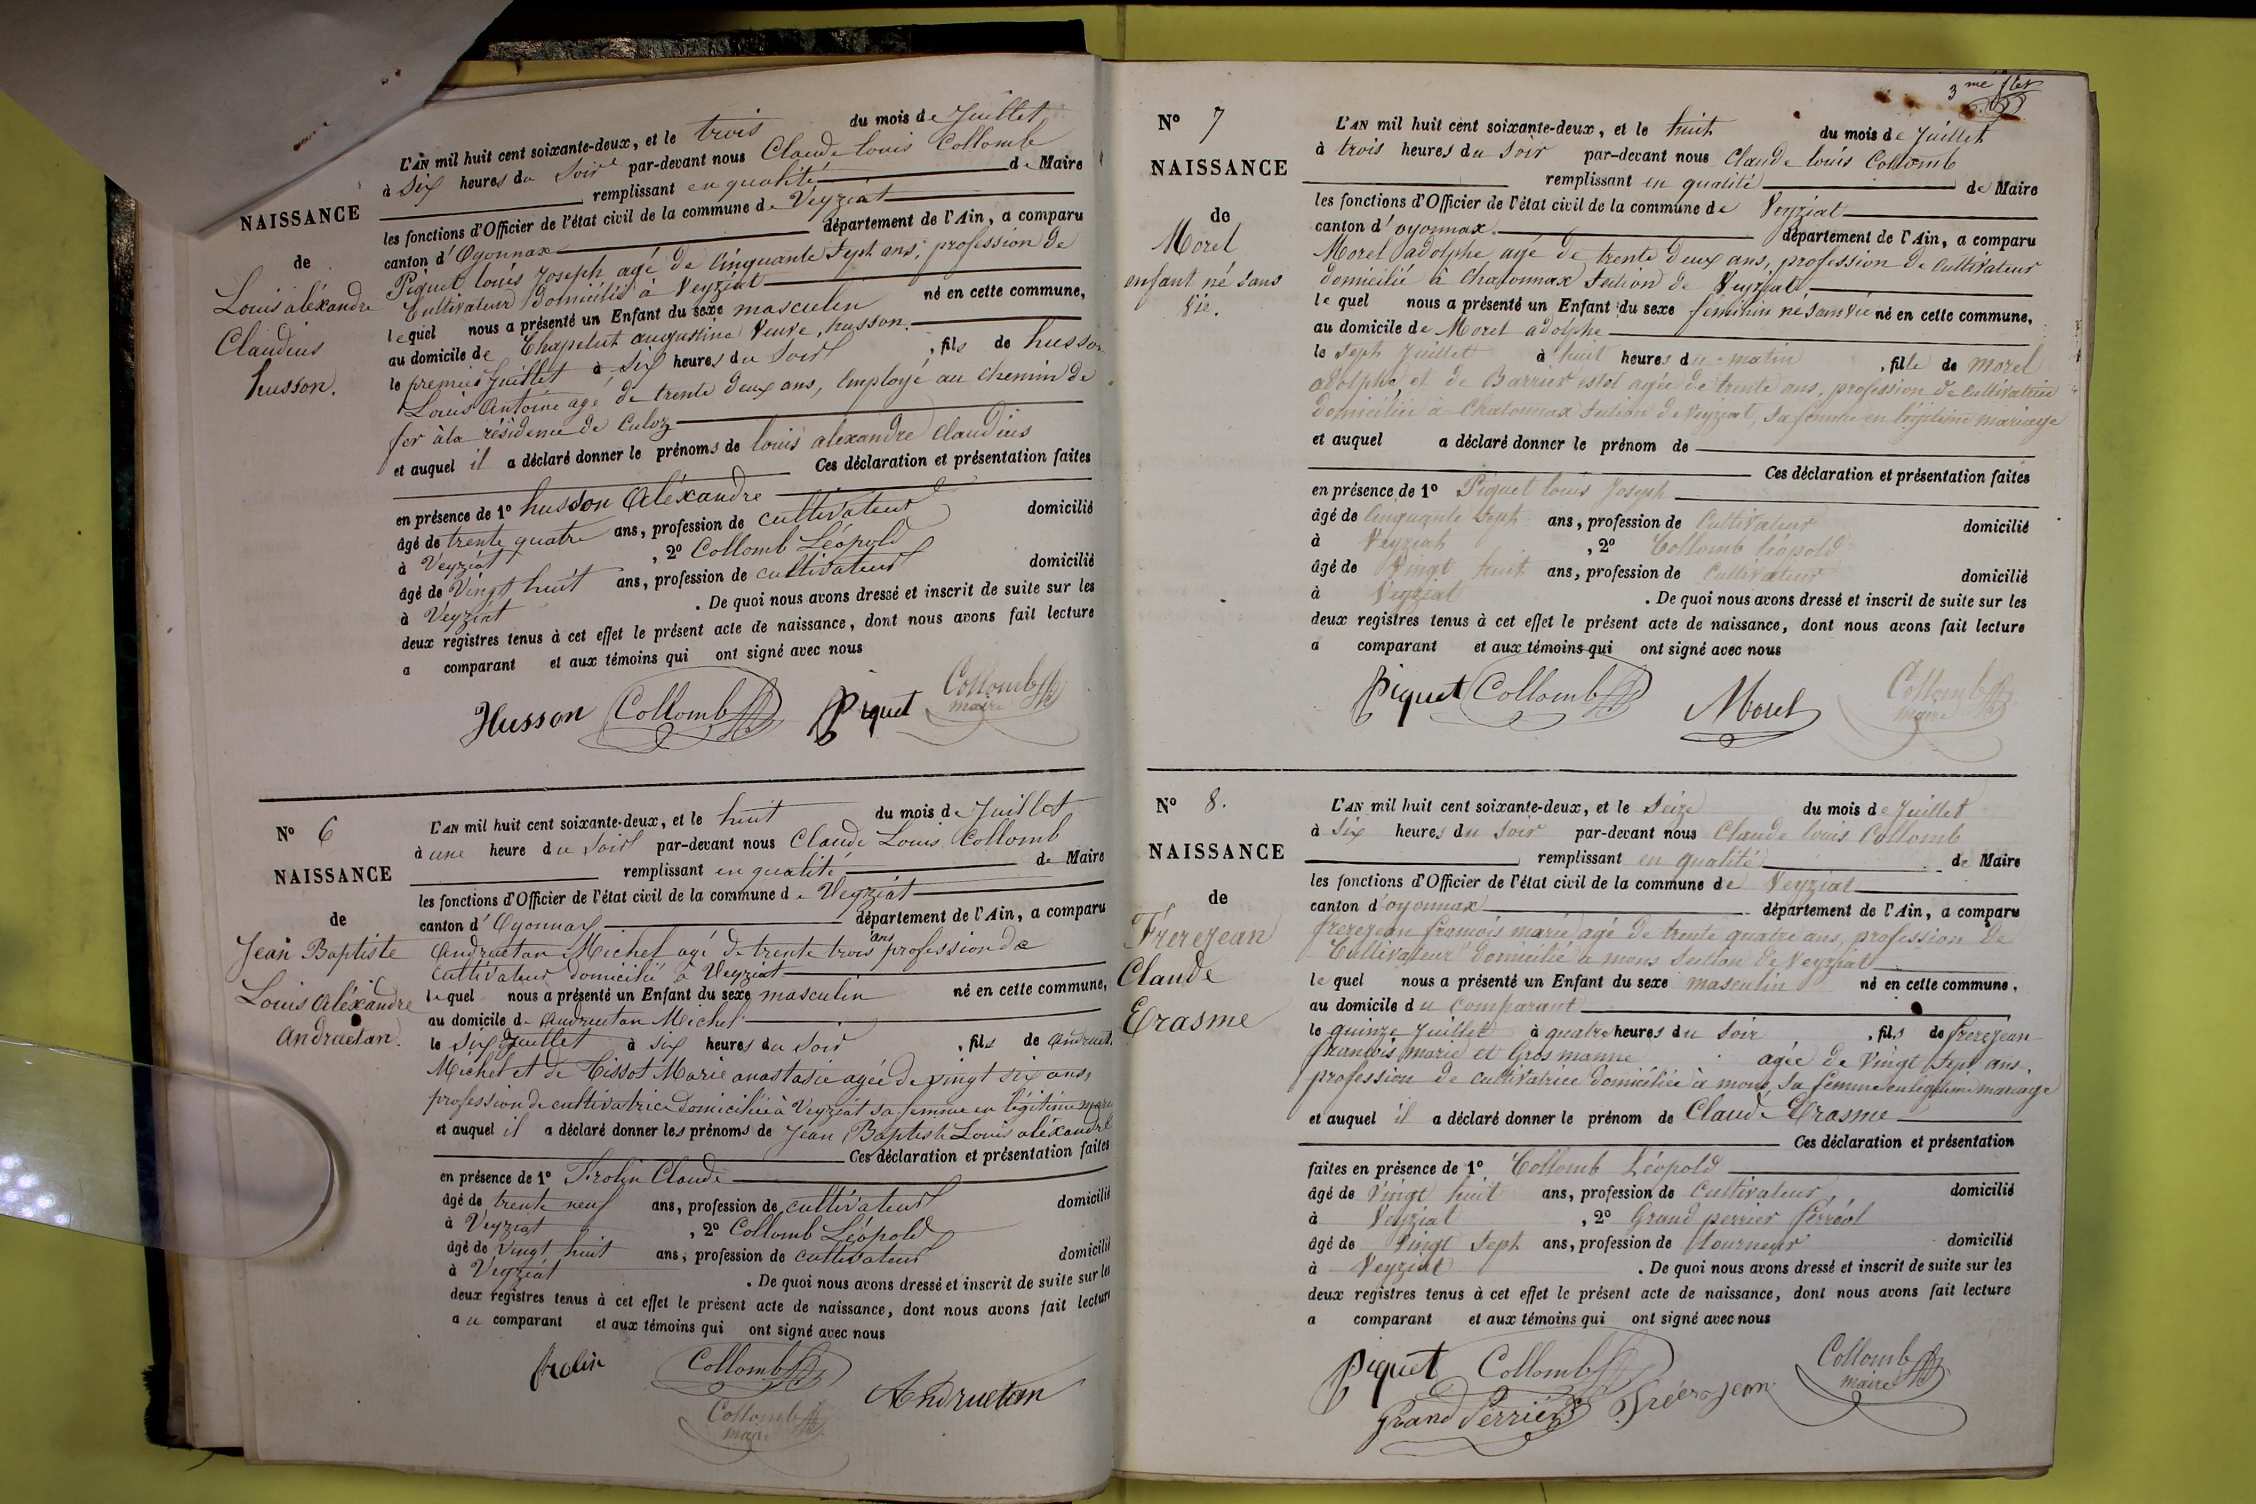 L'AN mil huit cent soixante-deux, et le trois du mois de Juillet
à six heures du soir par-devant nous Claude Louis Collomb
remplissant en qualité de Maire
NAISSANCE
les fonctions d'Officier de l'état civil de la commune de Veyziat
canton d'Oyonnax département de l'Ain, a comparu
de
Louis aléxandre
Claudius
husson.
Piquet louis Joseph agé de Cinquante sept ans, profession de
Cultivateur domicilié à Veyziat
lequel nous a présenté un Enfant du sexe masculin né en cette commune,
au domicile de Chapelut augustine Veuve husson.
le premier Juillet à six heures du Soir, fils de husson
Louis Antoine agé de trente deux ans, Employé au chemin de
fer à la résidence de Culoz
et auquel il a déclaré donner le prénoms de louis alexandre claudius
Ces déclaration et présentation faites
en présence de 1° husson Aléxandre
âgé de trente quatre ans, profession de cultivateur domicilié
à Veyziat, 2° Collomb Léopold
âgé de Vingt huit ans, profession de cultivateur domicilié
à Veyziat. De quoi nous avons dressé et inscrit de suite sur les
deux registres tenus à cet effet le présent acte de naissance, dont nous avons fait lecture
a comparant et aux témoins qui ont signé avec nous
Husson Collomb Piquet Collomb
maire
N° 6
NAISSANCE
de
Jean Baptiste
Louis Aléxandre
andruétan.
L'AN mil huit cent soixante-deux, et le huit du mois de Juillet
à une heure du soir par-devant nous Claude Louis Collomb
remplissant en qualité de Maire
les fonctions d'Officier de l'état civil de la commune de Veyziat
canton d'Oyonnax département de l'Ain, a comparu
Andruetan Michel agé de trente trois ans profession de
cultivateur domicilié à Veyziat
lequel nous a présenté un Enfant du sexe masculin né en cette commune,
au domicile de Andruetan Michel
le six Juillet à six heures du soir, fils de andruet.
Michel et de Tissot Marie anastasie agée de vingt six ans,
profession de cultivatrice domiciliée à Veyziat sa femme en légitime mari
et auquel il a déclaré donner les prénoms de Jean Baptiste Louis aléxandre
Ces déclaration et présentation faites
en présence de 1° Frolin Claude
âgé de trente neuf ans, profession de cultivateur domicilié
à Veyziat, 2° Collomb Léopold
âgé de vingt huit ans, profession de cultivateur domicilié
à Veyziat. De quoi nous avons dressé et inscrit de suite sur les
deux registres tenus à cet effet le présent acte de naissance, dont nous avons fait lecture
au comparant et aux témoins qui ont signé avec nous
frolin Collomb Andruetan
Collomb
maire
3me
N° 7
NAISSANCE
de
Morel
enfant né sans
Vie.
L'AN mil huit cent soixante-deux, et le huit du mois de Juillet
à trois heures du soir par-devant nous Claude louis Collomb
remplissant en qualité de Maire
les fonctions d'Officier de l'état civil de la commune de Veyziat
canton d'oyonnax département de l'Ain, a comparu
Morel adolphe agé de trente deux ans, profession de cultivateur
domicilié à Chatonnax Section de Veyziat
lequel nous a présenté un Enfant du sexe féminin né sans vie né en cette commune,
au domicile de Morel adolphe
le sept Juillet à huit heures du matin, fille de morel
adolphe, et de Barrier agée de trente ans, profession de cultivatrice
domiciliée à Chatonnax Section de Veyziat, sa femme en légitime mariage
et auquel a déclaré donner le prénom de
Ces déclaration et présentation faites
en présence de 1° Piquet louis Joseph
âgé de Cinquante Sept ans, profession de Cultivateur domicilié
à Veyziat, 2° Collomb léopold
âgé de Vingt huit ans, profession de Cultivateur domicilié
à Veyziat. De quoi nous avons dressé et inscrit de suite sur les
deux registres tenus à cet effet le présent acte de naissance, dont nous avons fait lecture
a comparant et aux témoins qui ont signé avec nous
Piquet Collomb Morel Collomb
maire
N° 8.
NAISSANCE
de
Frerejean
Claude
Erasme
L'AN mil huit cent soixante-deux, et le Seize du mois de Juillet
à Six heures du Soir par-devant nous Claude louis Collomb
remplissant en qualité de Maire
les fonctions d'Officier de l'état civil de la commune de Veyziat
canton d'oyonnax département de l'Ain, a comparu
frerejean françois marie, agé de trente quatre ans, profession de
Cultivateur Domicilié a mons Section de Veyziat
lequel nous a présenté un Enfant du sexe masculin né en cette commune,
au domicile du Comparant
le quinze Juillet à quatre heures du Soir, fils de frerejean
françois marie et Gros manne agée de Vingt sept ans,
profession de cultivatrice domiciliée à mons, sa femme en légitime mariage
et auquel il a déclaré donner le prénom de Claude Erasme
Ces déclaration et présentation
faites en présence de 1° Collomb Léopold
âgé de Vingt huit ans, profession de Cultivateur domicilié
à Veyziat, 2° Grand perrier ferréol
âgé de Vingt Sept ans, profession de tourneur domicilié
à Veyziat. De quoi nous avons dressé et inscrit de suite sur les
deux registres tenus à cet effet le présent acte de naissance, dont nous avons fait lecture
a comparant et aux témoins qui ont signé avec nous
Piquet Collomb Collomb
maire
Grand Perrier Frérejean